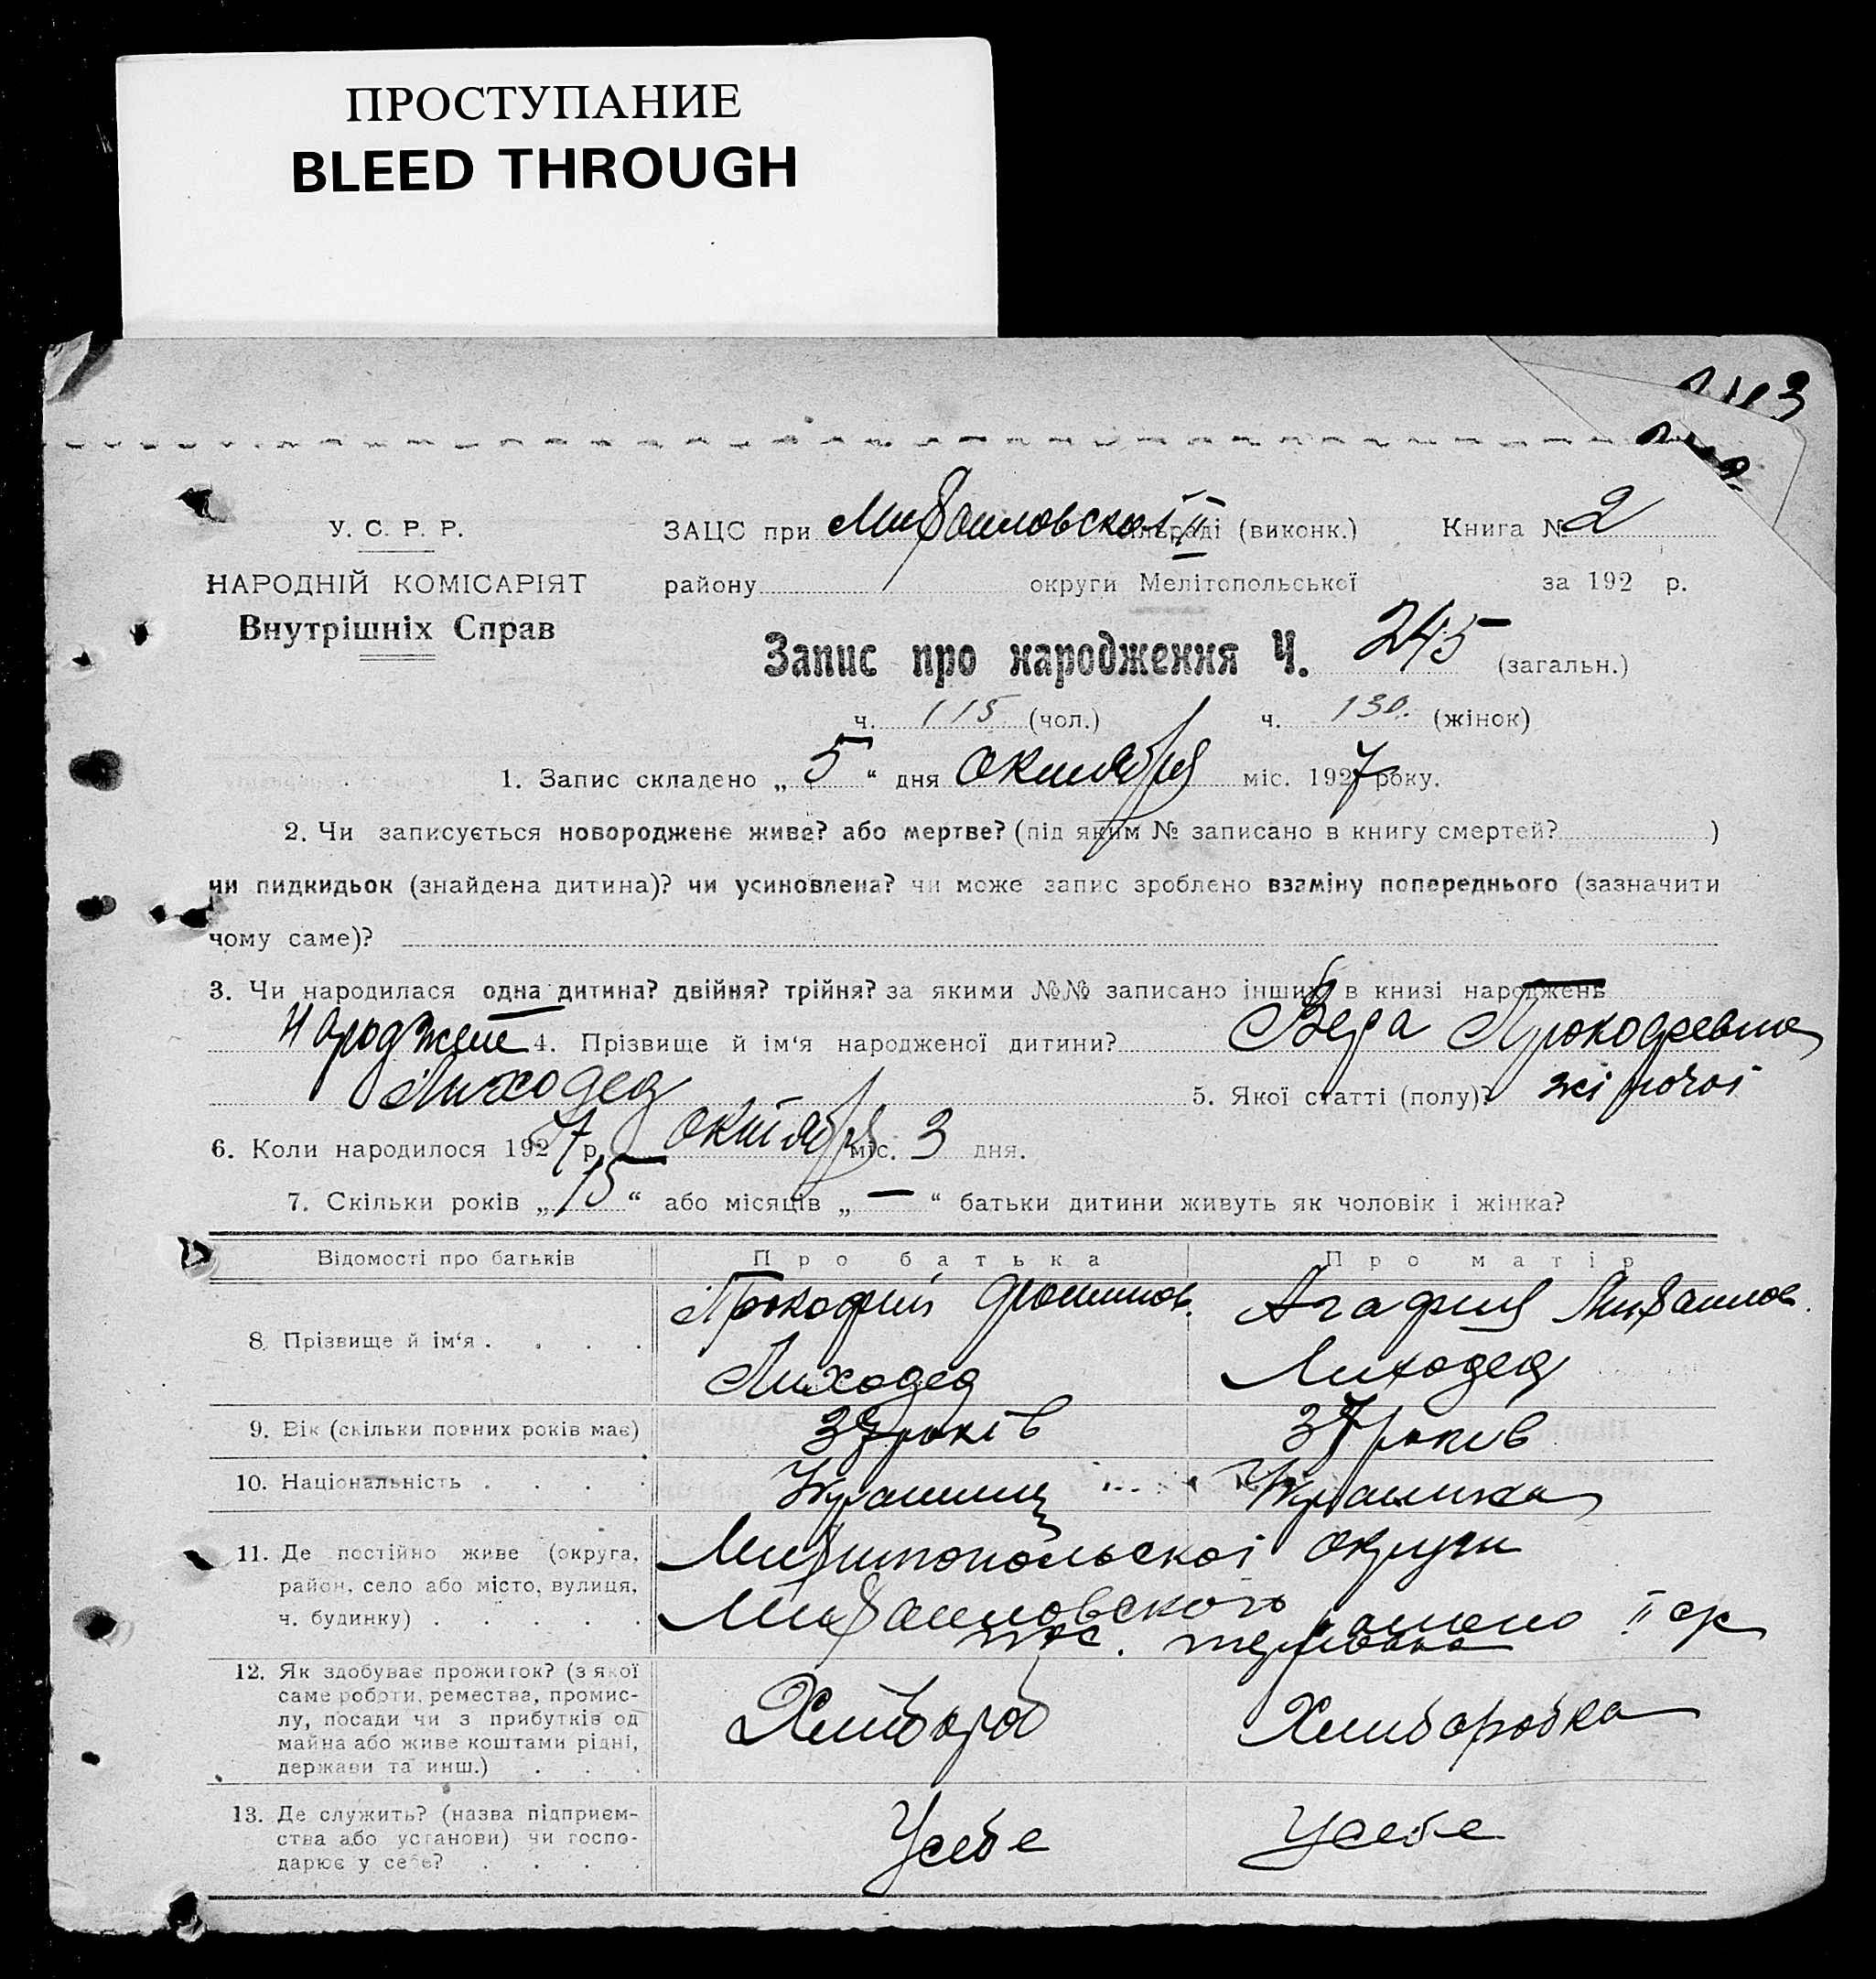 ПРОСТУПАНИЕ
BLEED THROUGH
У. С. Р. Р.
НАРОДНІЙ КОМІСАРІЯТ
Внутрішніх Справ
ЗАЦС при Михаиловскоі ІІ сільраді (виконк.) Книга № 2
району округи Мелітопольської за 192 р.
Запис про народження Ч. 245 (загальн.)
ч. 115 (чол.) ч. 130. (жінок)
1. Запис складено „ 5 “ дня октября міс. 1927 року.
2. Чи записується новороджене живе? або мертве? (під яким № записано в книгу смертей? )
чи пидкидьок (знайдена дитина)? чи усиновлена? чи може запис зроблено взаміну попереднього (зазначити
чому саме)?
3. Чи народилася одна дитина? двійня? трійня? за якими №№ записано інших в книзі народжень
4. Прізвище й ім‘я народженої дитини? Вера Прокофевна
Лиходед 5. Якої статті (полу)? жіночоі
6. Коли народилося 1927 р. октября міс. 3 дня.
7. Скільки років „ 15 “ або місяців „ — “ батьки дитини живуть як чоловік і жінка?
Відомості про батьків Про батька Про матір
8. Прізвище й ім‘я . . . . Прокофий Агафия Михаилов.
Лиходед Лиходед
9. Вік (скільки повних років має) 37 років 37 років
10. Національність . . . . Украинец Украинка
11. Де постійно живе (округа, округи
район, село або місто, вулиця,
ч. будинку) . . . . . Михаиловского району ІІ ср
пос. терновка
12. Як здобуває прожиток? (з якої
саме роботи, ремества, промис-
лу, посади чи з прибутків од
майна або живе коштами рідні,
держави та инш.) . . . Хлибороб Хлиборобка
13. Де служить? (назва підприєм-
ства або установи) чи госпо-
дарює у себе? . . . . Усебе Усебе